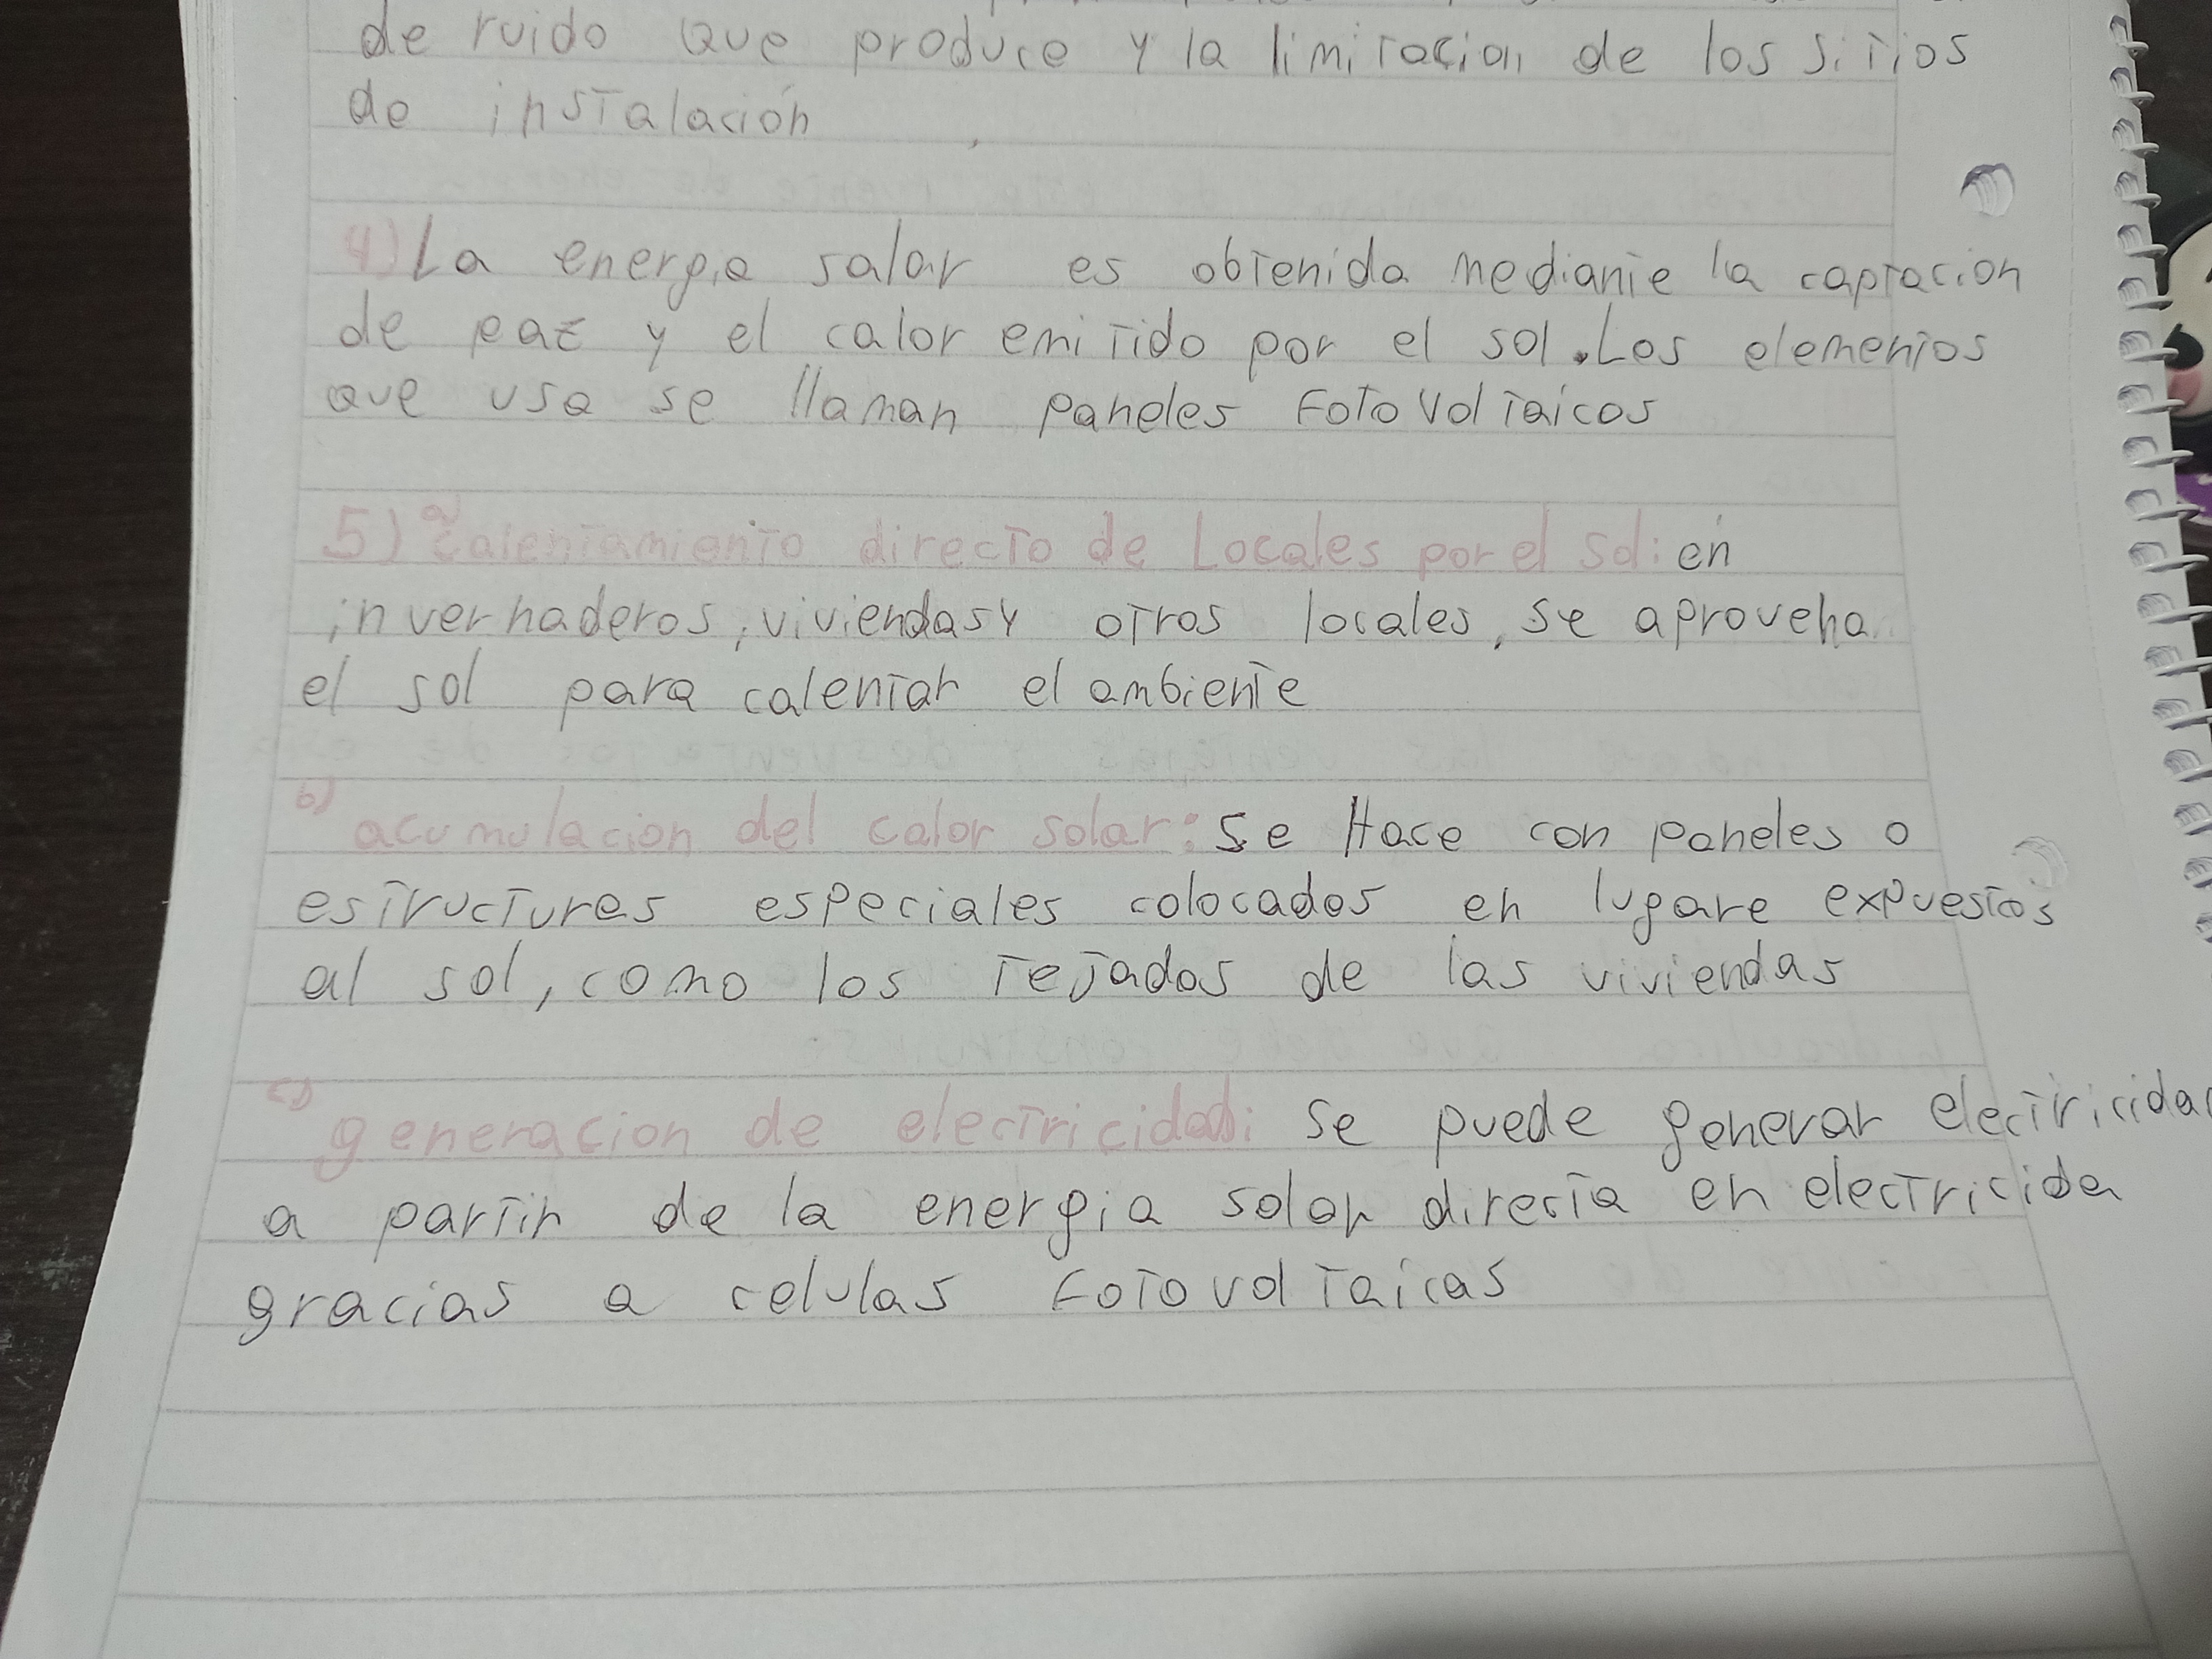 de ruido que produce y la limitacion de los sitios
de instalación
4) La energia salar es obtenida mediante la captacion
de paz y el calor emitido por el sol. Los elementos
que usa se llaman paneles Fotovoltaicos
5) a) Calentamiento directo de Locales por el Sol: en
invernaderos, viviendas y otros locales, se aproveha
el sol para calentar el ambiente
b) acumulacion del calor solar: Se Hace con paneles o
estructures especiales colocados en lugare expuestos
al sol, como los tejados de las viviendas
c) generacion de electricidad: Se puede generar electricidad
a partir de la energia solar directa en electricida
gracias a celulas Fotovoltaicas